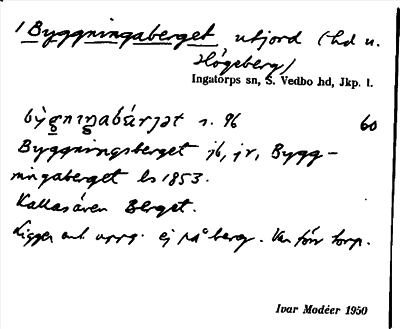 / Byggningaberget utjord (hd u.
Högeberg)
Ingatorps sn, S. Vedbo hd, Jkp. l.
s. 96 60
Byggningsberget jb, jr, Bygg-
ningaberget ls 1853.
Kallas även Berget.
Ligger enl. uppg. ej på berg. Var förr torp.
Ivar Modéer 1950